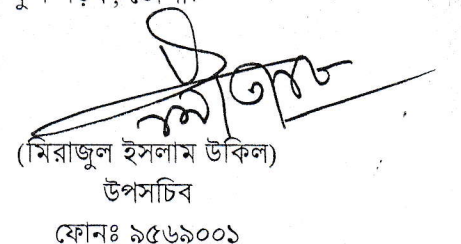 (মিরাজুল ইসলাম উকিল)
উপসচিব
ফোনঃ ৯৫৬৯০০১